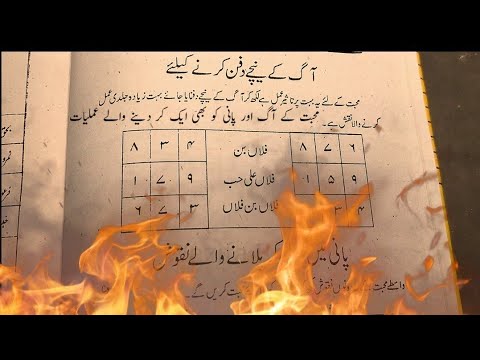 آگ کے نیچے دفن کرنے کیلئے
محبت کے لئے یہ بہت پرتاثیر عمل ہے لکھ کر آگ کے نیچے دفنایا جائے بہت زیادہ جلدی عمل
والا نقش ہے۔ محبت کے آگ اور پانی کو بھی ایک کر دینے والے عملیات
۶ ۷ ۸ فلاں بن ۴ ۳ ۸
۹ ۵ ۱ فلاں علی حب ۹ ۷ ۱
۴ ۳ فلاں بن فلاں ۳ ۷ ۶
پانی میں ملانے والے نقوش
واسطے محبت کریں گے۔